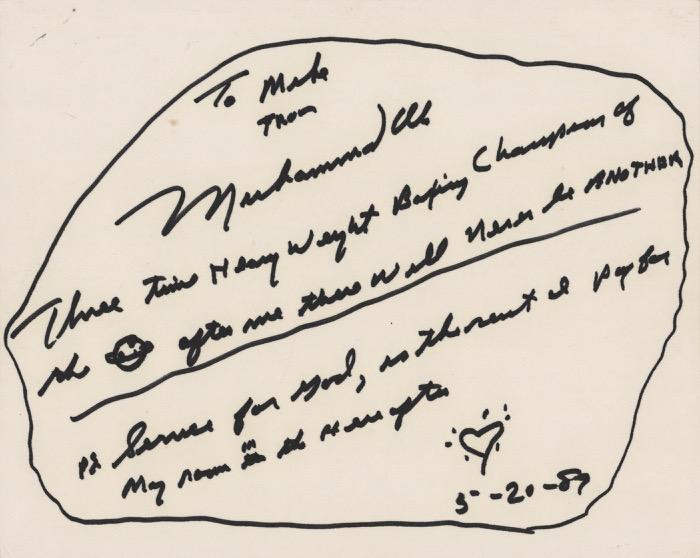 To Mike
From
Muhammad Ali
Three time Heavy Weight Boxing Champion of
the after me there will Never be ANOTHER
PS Service for God, is the rent I Pay for
My room in the Hereafter
5-20-89